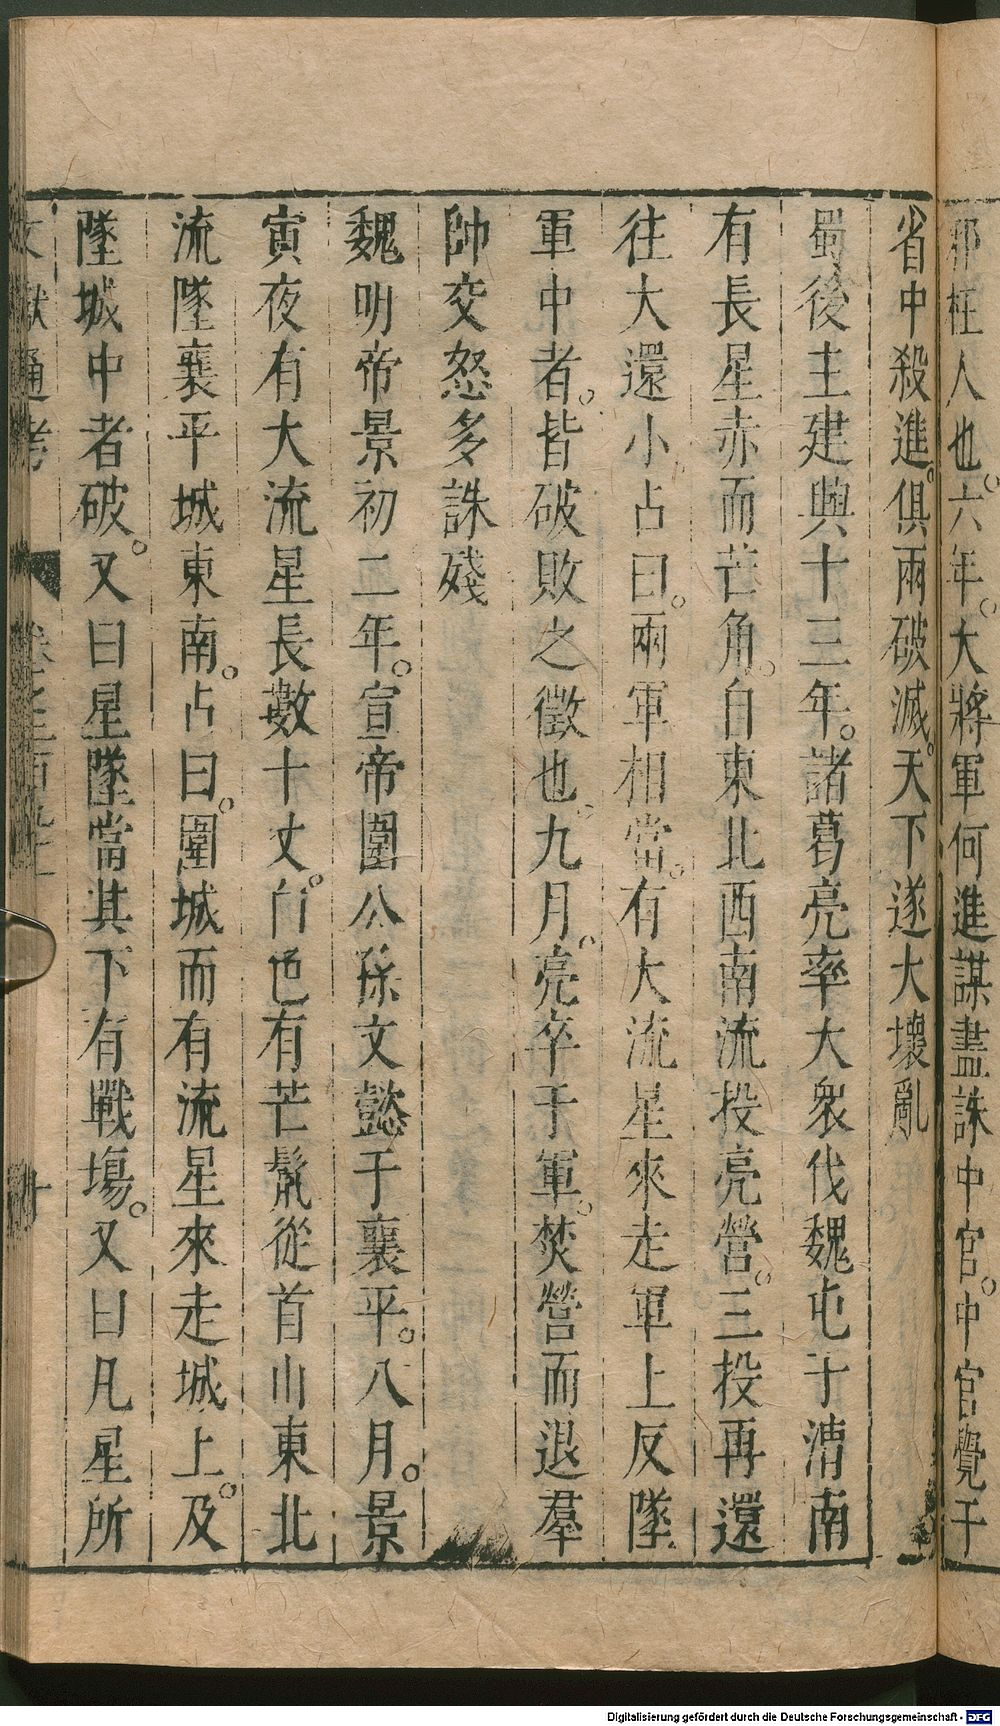 邪枉人也。六年。大將軍何進謀盡誅中官。中官覺于
省中殺進。俱兩破滅。天下遂大壞亂
蜀後主建興十三年。諸葛亮率大衆伐魏屯于渭南
有長星赤而芒角。自東北西南流投亮營。三投再還
往大還小占曰。兩軍相當。有大流星來走軍上反墜
軍中者。皆破敗之徵也。九月。亮卒于軍。焚營而退羣
帥交怒多誅殘
魏明帝景初二年。宣帝圍公孫文懿于襄平。八月。景
寅夜有大流星長數十丈。白色有芒鬣從首山東北
流墜襄平城東南。占曰。圍城而有流星來走城上。及
墜城中者破。又曰星墜當其下有戰場。又曰凡星所
文獻通考
十
Digitalisierung gefördert durch die Deutsche Forschungsgemeinschaft - DFG